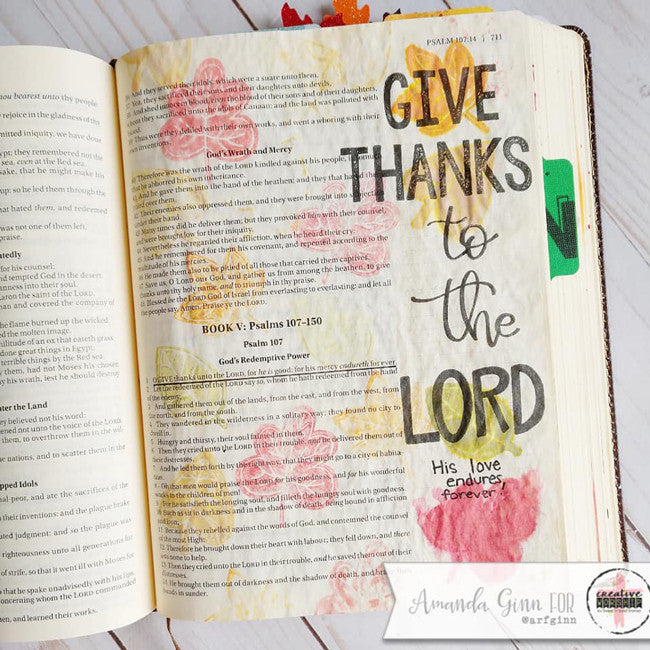 thou bearest unto thy people
rejoice in the gladness of thy
mitted iniquity, we have done
ypt; they remembered not the
sea, even at the Red sea.
sake, that he might make his
up: so he led them through the
that hated them, and redeemed
was not one of them left.
praise.
atedly
for his counsel:
and tempted God in the desert.
anness into their soul.
aron the saint of the LORD.
an and covered the company of
he flame burned up the wicked.
d the molten image.
militude of an ox that eateth grass.
done great things in Egypt;
terrible things by the Red sea.
y them, had not Moses his chosen
y his wrath, lest he should destroy
ter the Land
y believed not his word:
ned not unto the voice of the LORD.
em, to overthrow them in the
nations, and to scatter them in the
pped Idols
al-peor, and ate the sacrifices of the
their inventions: and the plague brake
uted judgment: and so the plague was
righteousness unto all generations for
of strife, so that it went ill with Moses for
so that he spake unadvisedly with his lips.
concerning whom the LORD commanded
en, and learned their works.
PSALM 107:14 | 711
36 And they served their idols: which were a snare unto them.
37 Yea, they sacrificed their sons and their daughters unto devils,
38 And shed innocent blood, even the blood of their sons and of their daughters,
whom they sacrificed unto the idols of Canaan: and the land was polluted with
39 Thus were they defiled with their own works, and went a whoring with their
own inventions.
God's Wrath and Mercy
40 Therefore was the wrath of the LORD kindled against his people,
that he abhorred his own inheritance.
41 And he gave them into the hand of the heathen; and they that hated
ruled over them.
42 Their enemies also oppressed them, and they were brought into subjection
under their hand.
43 Many times did he deliver them; but they provoked him with their counsel,
and were brought low for their iniquity.
44 Nevertheless he regarded their affliction, when he heard their cry:
45 And he remembered for them his covenant, and repented according to the
multitude of his mercies.
46 He made them also to be pitied of all those that carried them captives.
47 Save us, O LORD our God, and gather us from among the heathen, to give
thanks unto thy holy name, and to triumph in thy praise.
48 Blessed be the LORD God of Israel from everlasting to everlasting: and let all
the people say, Amen. Praise ye the LORD.
BOOK V: Psalms 107–150
Psalm 107
God's Redemptive Power
1 O GIVE thanks unto the LORD, for he is good: for his mercy endureth for ever.
2 Let the redeemed of the LORD say so, whom he hath redeemed from the hand
of the enemy;
3 And gathered them out of the lands, from the east, and from the west, from
the north, and from the south.
4 They wandered in the wilderness in a solitary way; they found no city to
dwell in.
5 Hungry and thirsty, their soul fainted in them.
6 Then they cried unto the LORD in their trouble, and he delivered them out of
their distresses.
7 And he led them forth by the right way, that they might go to a city of habita-
tion.
8 Oh that men would praise the LORD for his goodness, and for his wonderful
works to the children of men!
9 For he satisfieth the longing soul, and filleth the hungry soul with goodness.
10 Such as sit in darkness and in the shadow of death, being bound in affliction
and iron;
11 Because they rebelled against the words of God, and contemned the counsel
of the most High:
12 Therefore he brought down their heart with labour; they fell down, and there
was none to help.
13 Then they cried unto the LORD in their trouble, and he saved them out of their
distresses.
14 He brought them out of darkness and the shadow of death, and brake their
bands in sunder.
GIVE
THANKS
to
the
LORD
His love
endures
forever!
N
Amanda Ginn FOR
@arfginn
creative
WORSHIP